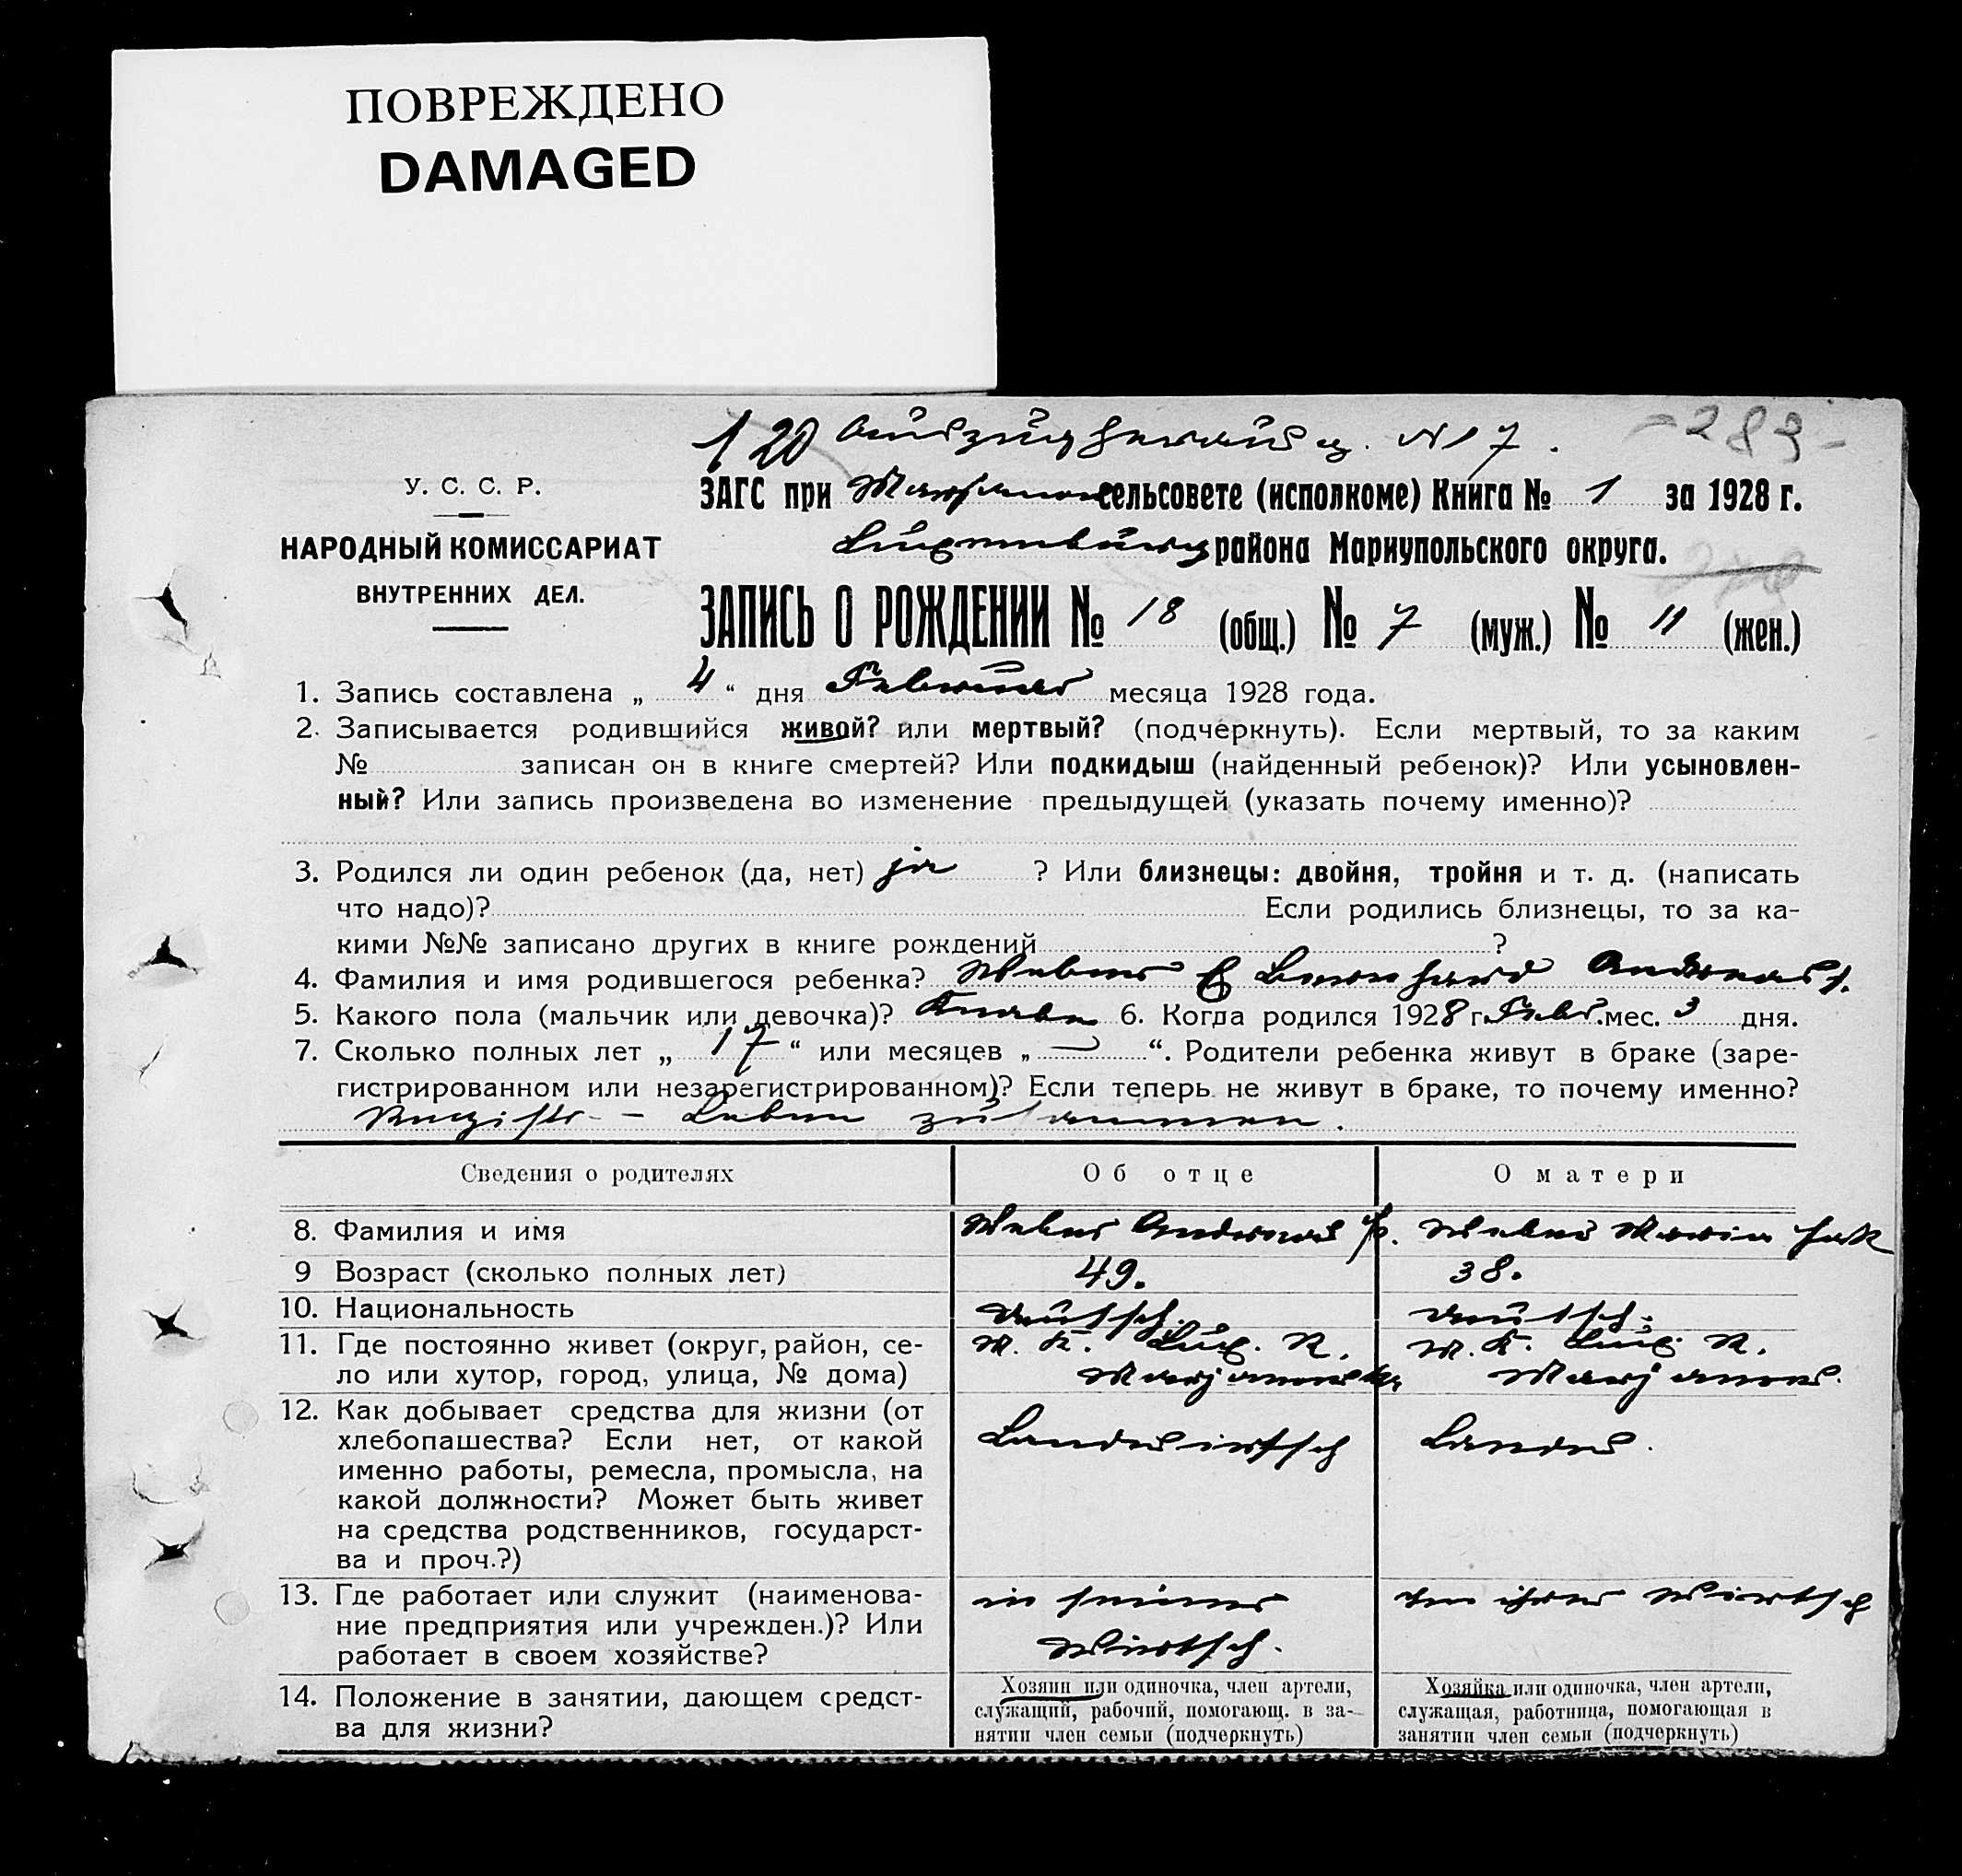 ПОВРЕЖДЕНО
DAMAGED
120 Auszug herausg. N 17.
- 283 -
У. С. С. Р.
НАРОДНЫЙ КОМИССАРИАТ
ВНУТРЕННИХ ДЕЛ.
ЗАГС при Marjanow сельсовете (исполкоме) Книга № 1 за 1928 г.
Luxemburg района Мариупольского округа.
ЗАПИСЬ О РОЖДЕНИИ № 18 (общ.) № 7 (муж.) № 11 (жен.)
1. Запись составлена „ 4 “ дня Februar месяца 1928 года.
2. Записывается родившийся живой? или мертвый? (подчеркнуть). Если мертвый, то за каким
№ записан он в книге смертей? Или подкидыш (найденный ребенок)? Или усыновлен-
ный? Или запись произведена во изменение предыдущей (указать почему именно)?
3. Родился ли один ребенок (да, нет) ja ? Или близнецы: двойня, тройня и т. д. (написать
что надо)? Если родились близнецы, то за ка-
кими №№ записано других в книге рождений ?
4. Фамилия и имя родившегося ребенка? Weber Bernhard Andreas
5. Какого пола (мальчик или девочка)? Knabe 6. Когда родился 1928 г. Febr. мес. 3 дня.
7. Сколько полных лет „ 17 “ или месяцев „ — “. Родители ребенка живут в браке (заре-
гистрированном или незарегистрированном)? Если теперь не живут в браке, то почему именно?
Registr - Leben zusammen.
Сведения о родителях Об отце О матери
8. Фамилия и имя Weber Andreas Weber Maria Jak
9 Возраст (сколько полных лет) 49. 38.
10. Национальность deutsch. deutsch.
11. Где постоянно живет (округ, район, се- M. K. Lux. R. M. K. Lux. R.
ло или хутор, город, улица, № дома) Marjanowka Marjanow.
12. Как добывает средства для жизни (от
хлебопашества? Если нет, от какой Landwirtsch Landw.
именно работы, ремесла, промысла, на
какой должности? Может быть живет
на средства родственников, государст-
ва и проч.?)
13. Где работает или служит (наименова- in seiner In ihrer Wirtsch
ние предприятия или учрежден.)? Или
работает в своем хозяйстве? Wirtsch.
14. Положение в занятии, дающем средст-
ва для жизни?
Хозяин или одиночка, член артели,
служащий, рабочий, помогающ. в за-
нятии член семьи (подчеркнуть)
Хозяйка или одиночка, член артели,
служащая, работница, помогающая в
занятии член семьи (подчеркнуть)